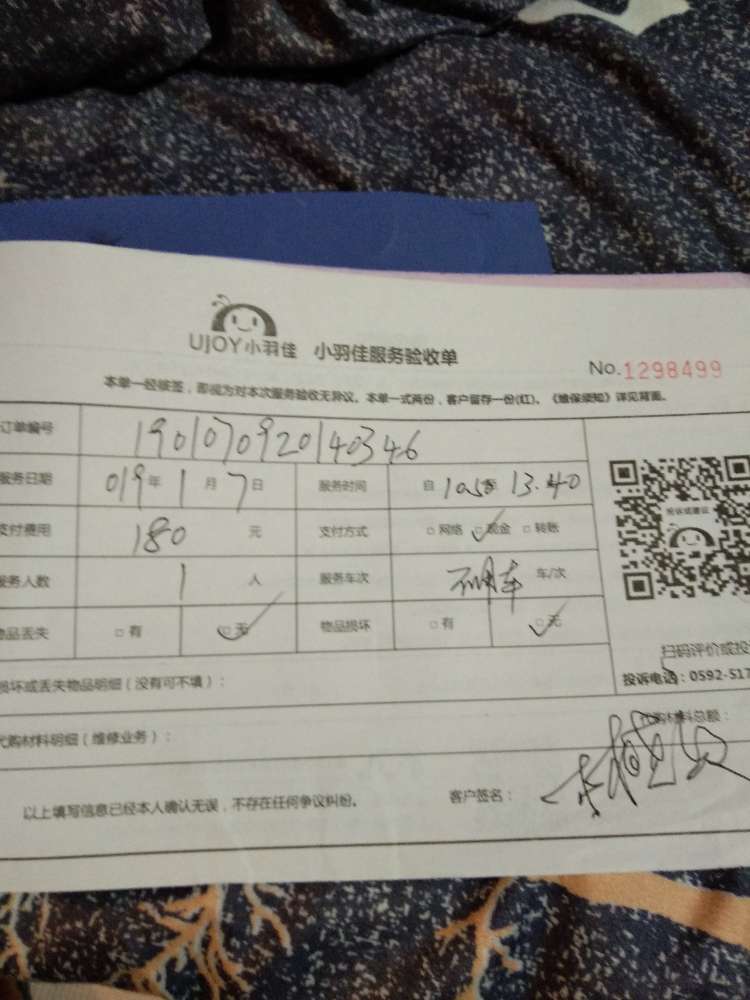 UJOY小羽佳 小羽佳服务验收单
No.1298499
本单一经核签，即视为对本次服务验收无异议。本单一式两份，客户留存一份(红)。《维保须知》详见背面。
订单编号 1901070920140346
服务日期 019年1月7日 服务时间 自 至 13.40
支付费用 180 元 支付方式 □网络 □现金 □转账
服务人数 1 人 服务车次 车/次
物品丢失 □有 □无 物品损坏 □有 □无
投诉或建议
扫码评价或投
投诉电话：0592-517
损坏或丢失物品明细（没有可不填）：
代购材料明细（维修业务）： 代购材料总额：
以上填写信息已经本人确认无误，不存在任何争议纠纷。 客户签名：